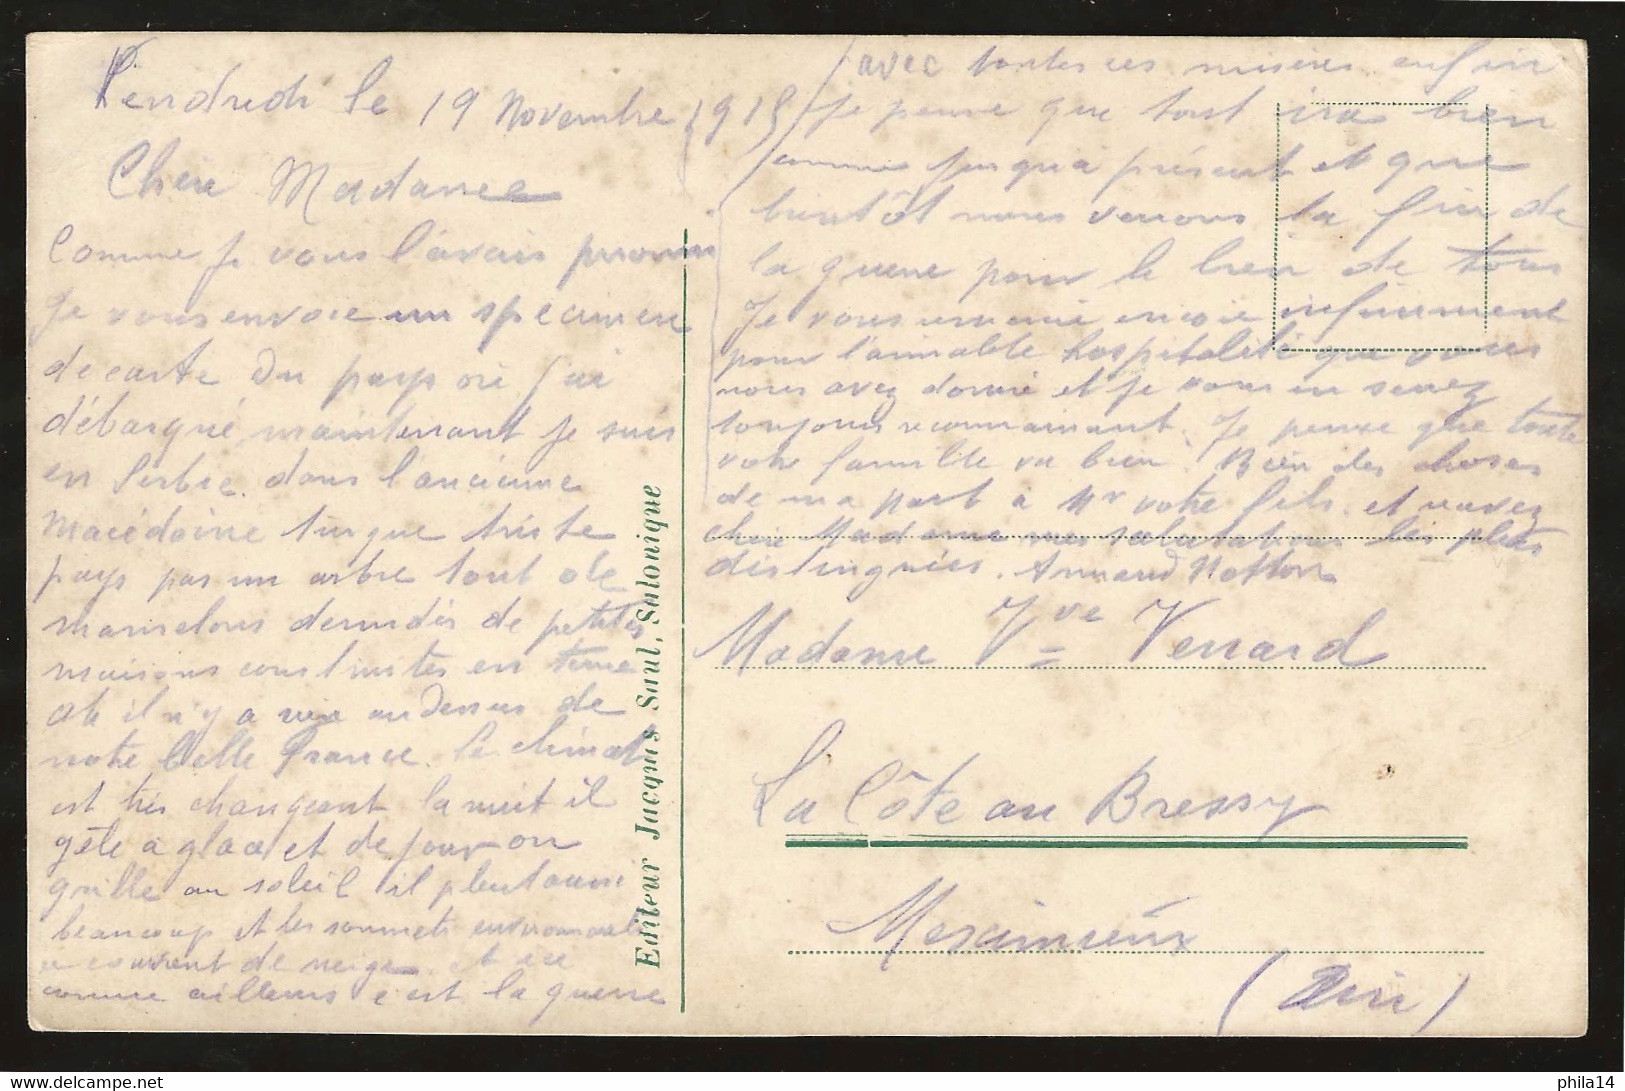 Vendredi le 19 Novembre 1915
Chère Madame
Comme je vous l'avais promis
Je vous envoie un specimen
de carte du pays où j'ai
débarqué maintenant je suis
en Serbie dans l'ancienne
Macédoine turque triste
pays pas un arbre tout de
mamelons denudés de petites
maisons construites en terre
ah il n'y a rien au dessus de
notre belle France. le climat
est très changeant la nuit il
gèle à glace et de jour on
grille au soleil il pleut aussi
beaucoup et les sommets environnants
se couvrent de neige et ici
comme ailleurs c'est la guerre
avec toutes ces misères enfin
Je pense que tout ira bien
comme jusqu'à présent et que
bientôt nous verrons la fin de
la guerre pour le bien de tous
Je vous remercie encore infiniment
pour l'aimable hospitalité que vous
nous avez donné et je vous en serez
toujours reconnaissant. Je pense que toute
votre famille va bien. Bien des choses
de ma part à Mr votre fils. et recevez
chère Madame mes salutations les plus
distinguées. Armand
Madame Vve Venard
La Côte au Bressy
Meximieux
(Ain)
Editeur Jacques Saul, Salonique
phila14